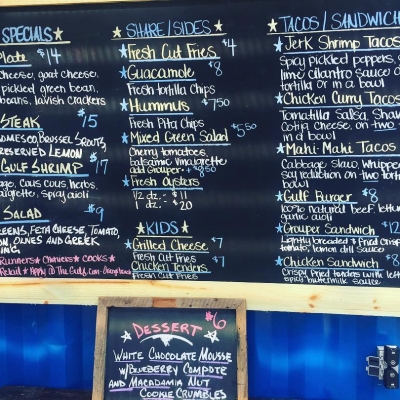 SPECIALS
Plate $14
Cheese, goat cheese,
pickled green bean,
beans, lavish crackers
STEAK $15
BRUSSEL SPROUTS
PRESERVED LEMON
GULF SHRIMP $17
cous cous, herbs,
spicy aioli
SALAD $9
GREENS, FETA CHEESE, TOMATO,
OLIVES AND GREEK
Runners Chariers COOKS
Retail Apply @ The Gulf.com
SHARE/SIDES
Fresh Cut Fries $4
Guacamole $8
Fresh Tortilla Chips
Hummus $7.50
Fresh Pita Chips
Mixed Green Salad $5.50
Cherry tomatoes,
balsamic vinaigrette
add Grouper + $8.50
Fresh Oysters
1/2 dz. -
1 dz. - $20
KIDS
Grilled Cheese $7
Fresh Cut Fries
Chicken Tenders $7
Fresh Cut Fries
TACOS/SANDWICH
Jerk Shrimp Tacos
Spicy pickled peppers,
lime cilantro sauce
tortilla or in a bowl
Chicken Curry Tacos
Tomatilla Salsa, Shav
Cotija Cheese, on two
in a bowl
Mahi-Mahi Tacos
Cabbage Slaw, Wrapped
say reduction on two tor
in a bowl
Gulf Burger $8
100% natural beef, lettu
garlic aioli
Grouper Sandwich $12
Lightly breaded & fried Crisp
tomato, lemon dill sauce
Chicken Sandwich $8
Crispy Fried tenders with lett
Spicy buttermilk sauce
DESSERT $6
WHITE CHOCOLATE MOUSSE
W/BLUEBERRY COMPOTE
AND MACADAMIA NUT
COOKIE CRUMBLES